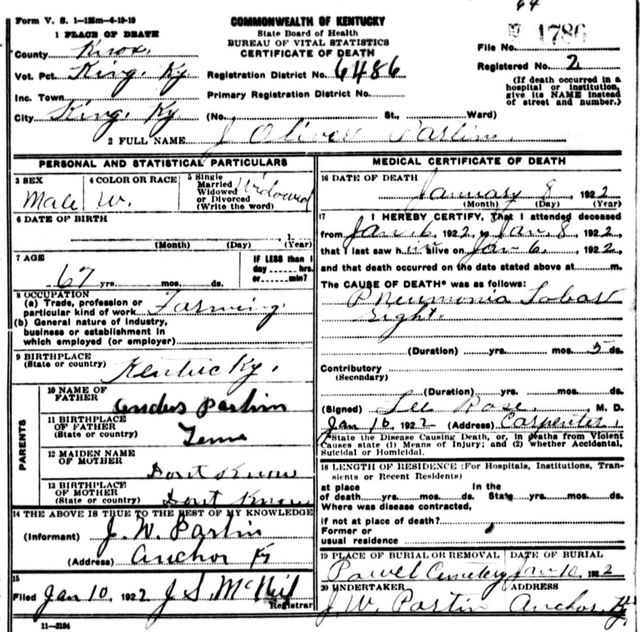 64
Form V. S. 1-125m-6-19-19
1 PLACE OF DEATH
County Knox
Vot. Pct. King, Ky
Inc. Town
City King, Ky
COMMONWEALTH OF KENTUCKY
State Board of Health
BUREAU OF VITAL STATISTICS
CERTIFICATE OF DEATH
Registration District No. 6486
Primary Registration District No.
(No. St., Ward)
File No. 1786
Registered No. 2
(If death occurred in a
hospital or institution,
give its NAME instead
of street and number.)
2 FULL NAME J Oliver Partin
PERSONAL AND STATISTICAL PARTICULARS
3 SEX
Male
4 COLOR OR RACE
W.
5 Single
Married
Widowed
or Divorced
(Write the word)
Widowed
6 DATE OF BIRTH
1
(Month) (Day) (Year)
7 AGE
67 yrs. mos. ds.
IF LESS than 1
day hrs.
or min?
8 OCCUPATION
(a) Trade, profession or
particular kind of work Farming
(b) General nature of industry,
business or establishment in
which employed (or employer)
9 BIRTHPLACE
(State or country) Kentucky.
PARENTS
10 NAME OF
FATHER Anders Partin
11 BIRTHPLACE
OF FATHER
(State or country) Tenn
12 MAIDEN NAME
OF MOTHER Dont Know
13 BIRTHPLACE
OF MOTHER
(State or country) Dont Know
14 THE ABOVE IS TRUE TO THE BEST OF MY KNOWLEDGE
(Informant) J. W. Partin
(Address) Anchor K
15
Filed Jan 10, 1922 J S McNeil
Registrar
11-3184
MEDICAL CERTIFICATE OF DEATH
16 DATE OF DEATH
January 8, 1922
(Month) (Day) (Year)
17 I HEREBY CERTIFY, That I attended deceased
from Jan 6, 1922, to Jan 8, 1922,
that I last saw him alive on Jan 6, 1922,
and that death occurred on the date stated above at m.
The CAUSE OF DEATH* was as follows:
Pneumonia Lobar
right.
(Duration) yrs. mos. 5 ds.
Contributory
(Secondary)
(Duration) yrs. mos. ds.
(Signed) Lee Rose, M. D.
Jan 16, 1922 (Address) Carpenter,
*State the Disease Causing Death, or, in deaths from Violent
Causes state (1) Means of Injury; and (2) whether Accidental,
Suicidal or Homicidal.
18 LENGTH OF RESIDENCE (For Hospitals, Institutions, Tran-
sients or Recent Residents)
at place In the
of death yrs. mos. ds. State yrs. mos. ds.
Where was disease contracted,
if not at place of death?
Former or
usual residence
19 PLACE OF BURIAL OR REMOVAL DATE OF BURIAL
Powel Cemetery Jan 10, 1922
20 UNDERTAKER ADDRESS
J. W. Partin Anchor, Ky